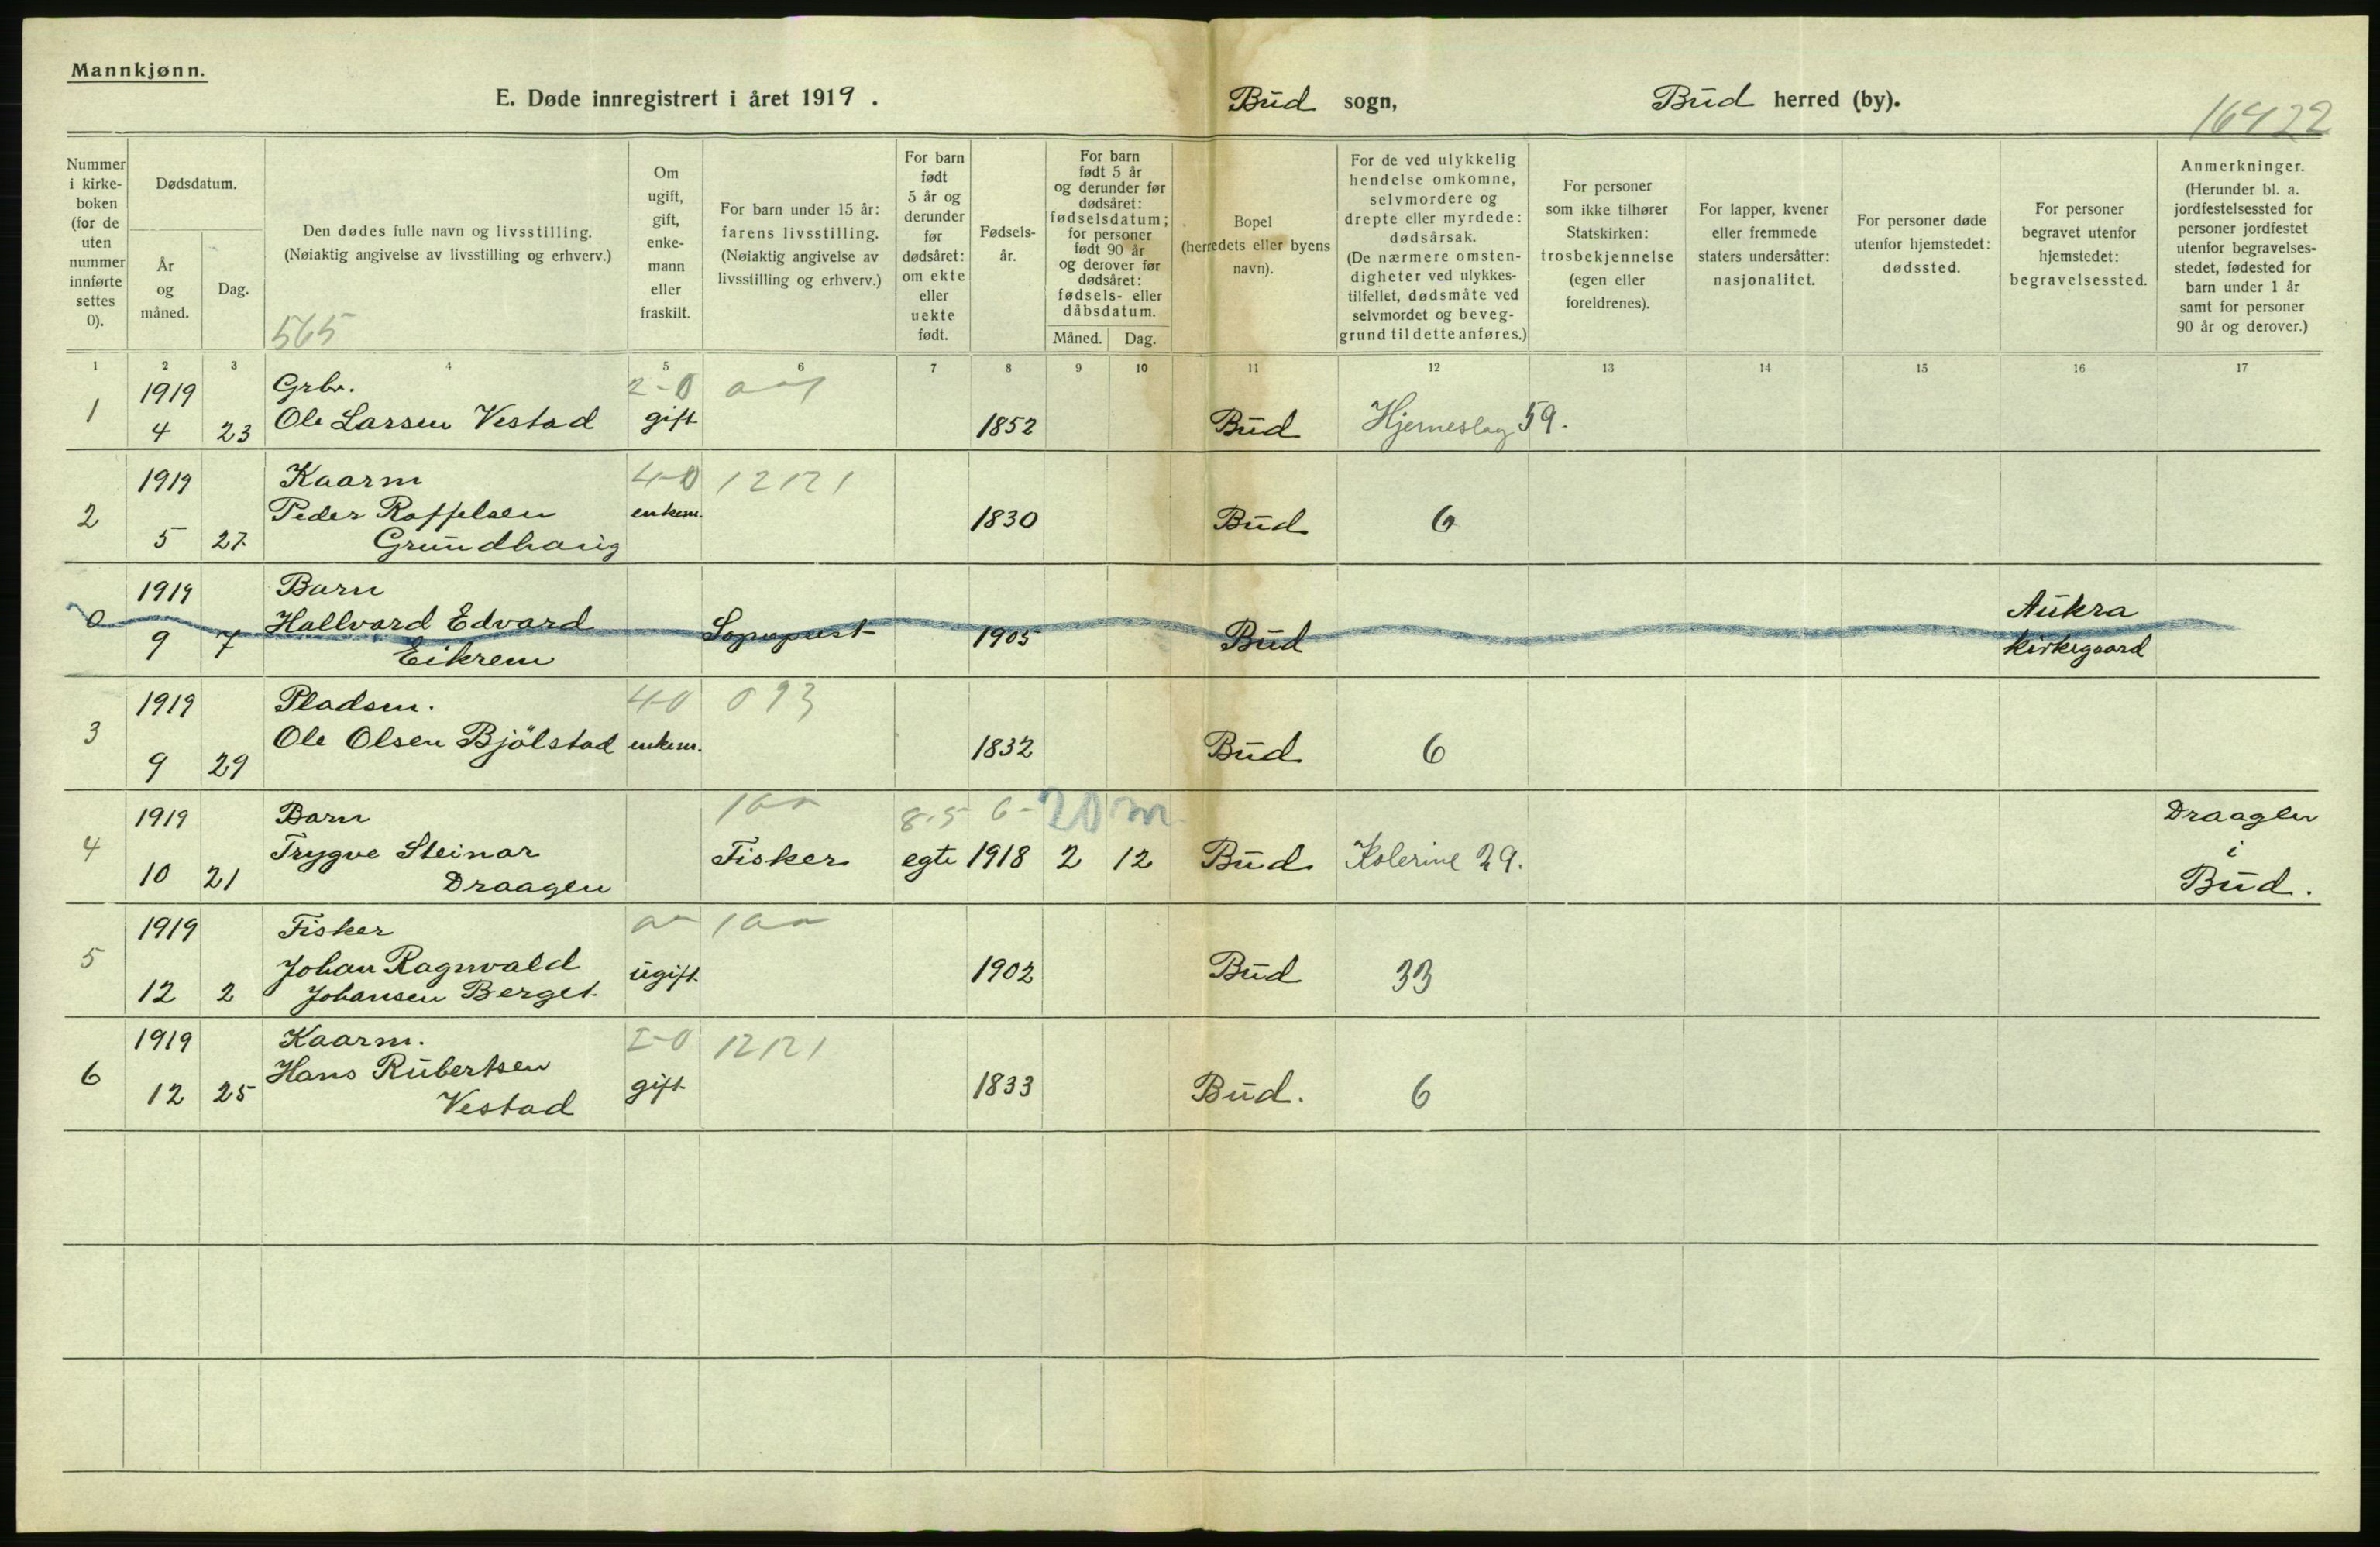 Mannkjønn.
E. Døde innregistrert i året 1919.
Bud sogn,
Bud herred (by).
16422
Nummer i kirke- boken (for de uten nummer innførte settes 0).
Dødsdatum.
År og måned.
Dag.
Den dødes fulle navn og livsstilling.
(Nøiaktig angivelse av livsstilling og erhverv.)
565
Om ugift, gift, enke- mann eller fraskilt.
For barn under 15 år: farens livsstilling. (Nøiaktig angivelse av livsstilling og erhverv.)
For barn født 5 år og derunder før dødsåret: om ekte eller uekte født.
Fødsels- år.
For barn født 5 år og derunder før dødsåret: fødselsdatum; for personer født 90 år og derover før dødsåret: fødsels- eller dåbsdatum.
Måned.
Dag.
Bopel (herredets eller byens navn).
For de ved ulykkelig hendelse omkomne, selvmordere og drepte eller myrdede: dødsårsak. (De nærmere omsten- digheter ved ulykkes- tilfellet, dødsmåte ved selvmordet og beveg- grund til dette anføres.)
For personer som ikke tilhører Statskirken: trosbekjennelse (egen eller foreldrenes).
For lapper, kvener eller fremmede staters undersåtter: nasjonalitet.
For personer døde utenfor hjemstedet: dødssted.
For personer begravet utenfor hjemstedet: begravelsessted.
Anmerkninger. (Herunder bl. a. jordfestelsessted for personer jordfestet utenfor begravelses- stedet, fødested for barn under 1 år samt for personer 90 år og derover.)
1 2 3 4 5 6 7 8 9 10 11 12 13 14 15 16 17
1919 Grbr. 2-0
1 4 23 Ole Larsen Vestad gift 1852 Bud Hjerneslag 59.
1919 Kaarm 4-0 12121
2 5 27. Peder Roffelsen enkem. 1830 Bud 6
Grundhaug
1919 Barn Aukra
0 9 7 Hallvard Edvard Sogneprest 1905 Bud kirkegaard
Eikrem
1919 Pladsm. 4-0 093
3 9 29 Ole Olsen Bjölstad enkem. 1832 Bud 6
1919 Barn 8.5 6- 20 m Draagen
4 10 21 Trygve Steinar Fisker egte 1918 2 12 Bud Kolerine 29. i
Draagen Bud.
1919 Fisker
5 12 2 Johan Ragnvald ugift 1902 Bud 33
Johansen Berget
1919 Kaarm. 2-0 12121
6 12 25 Hans Rubertsen gift 1833 Bud. 6
Vestad